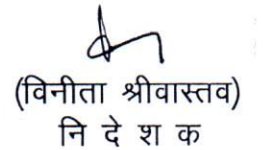 (विनीता श्रीवास्तव)
नि दे श क